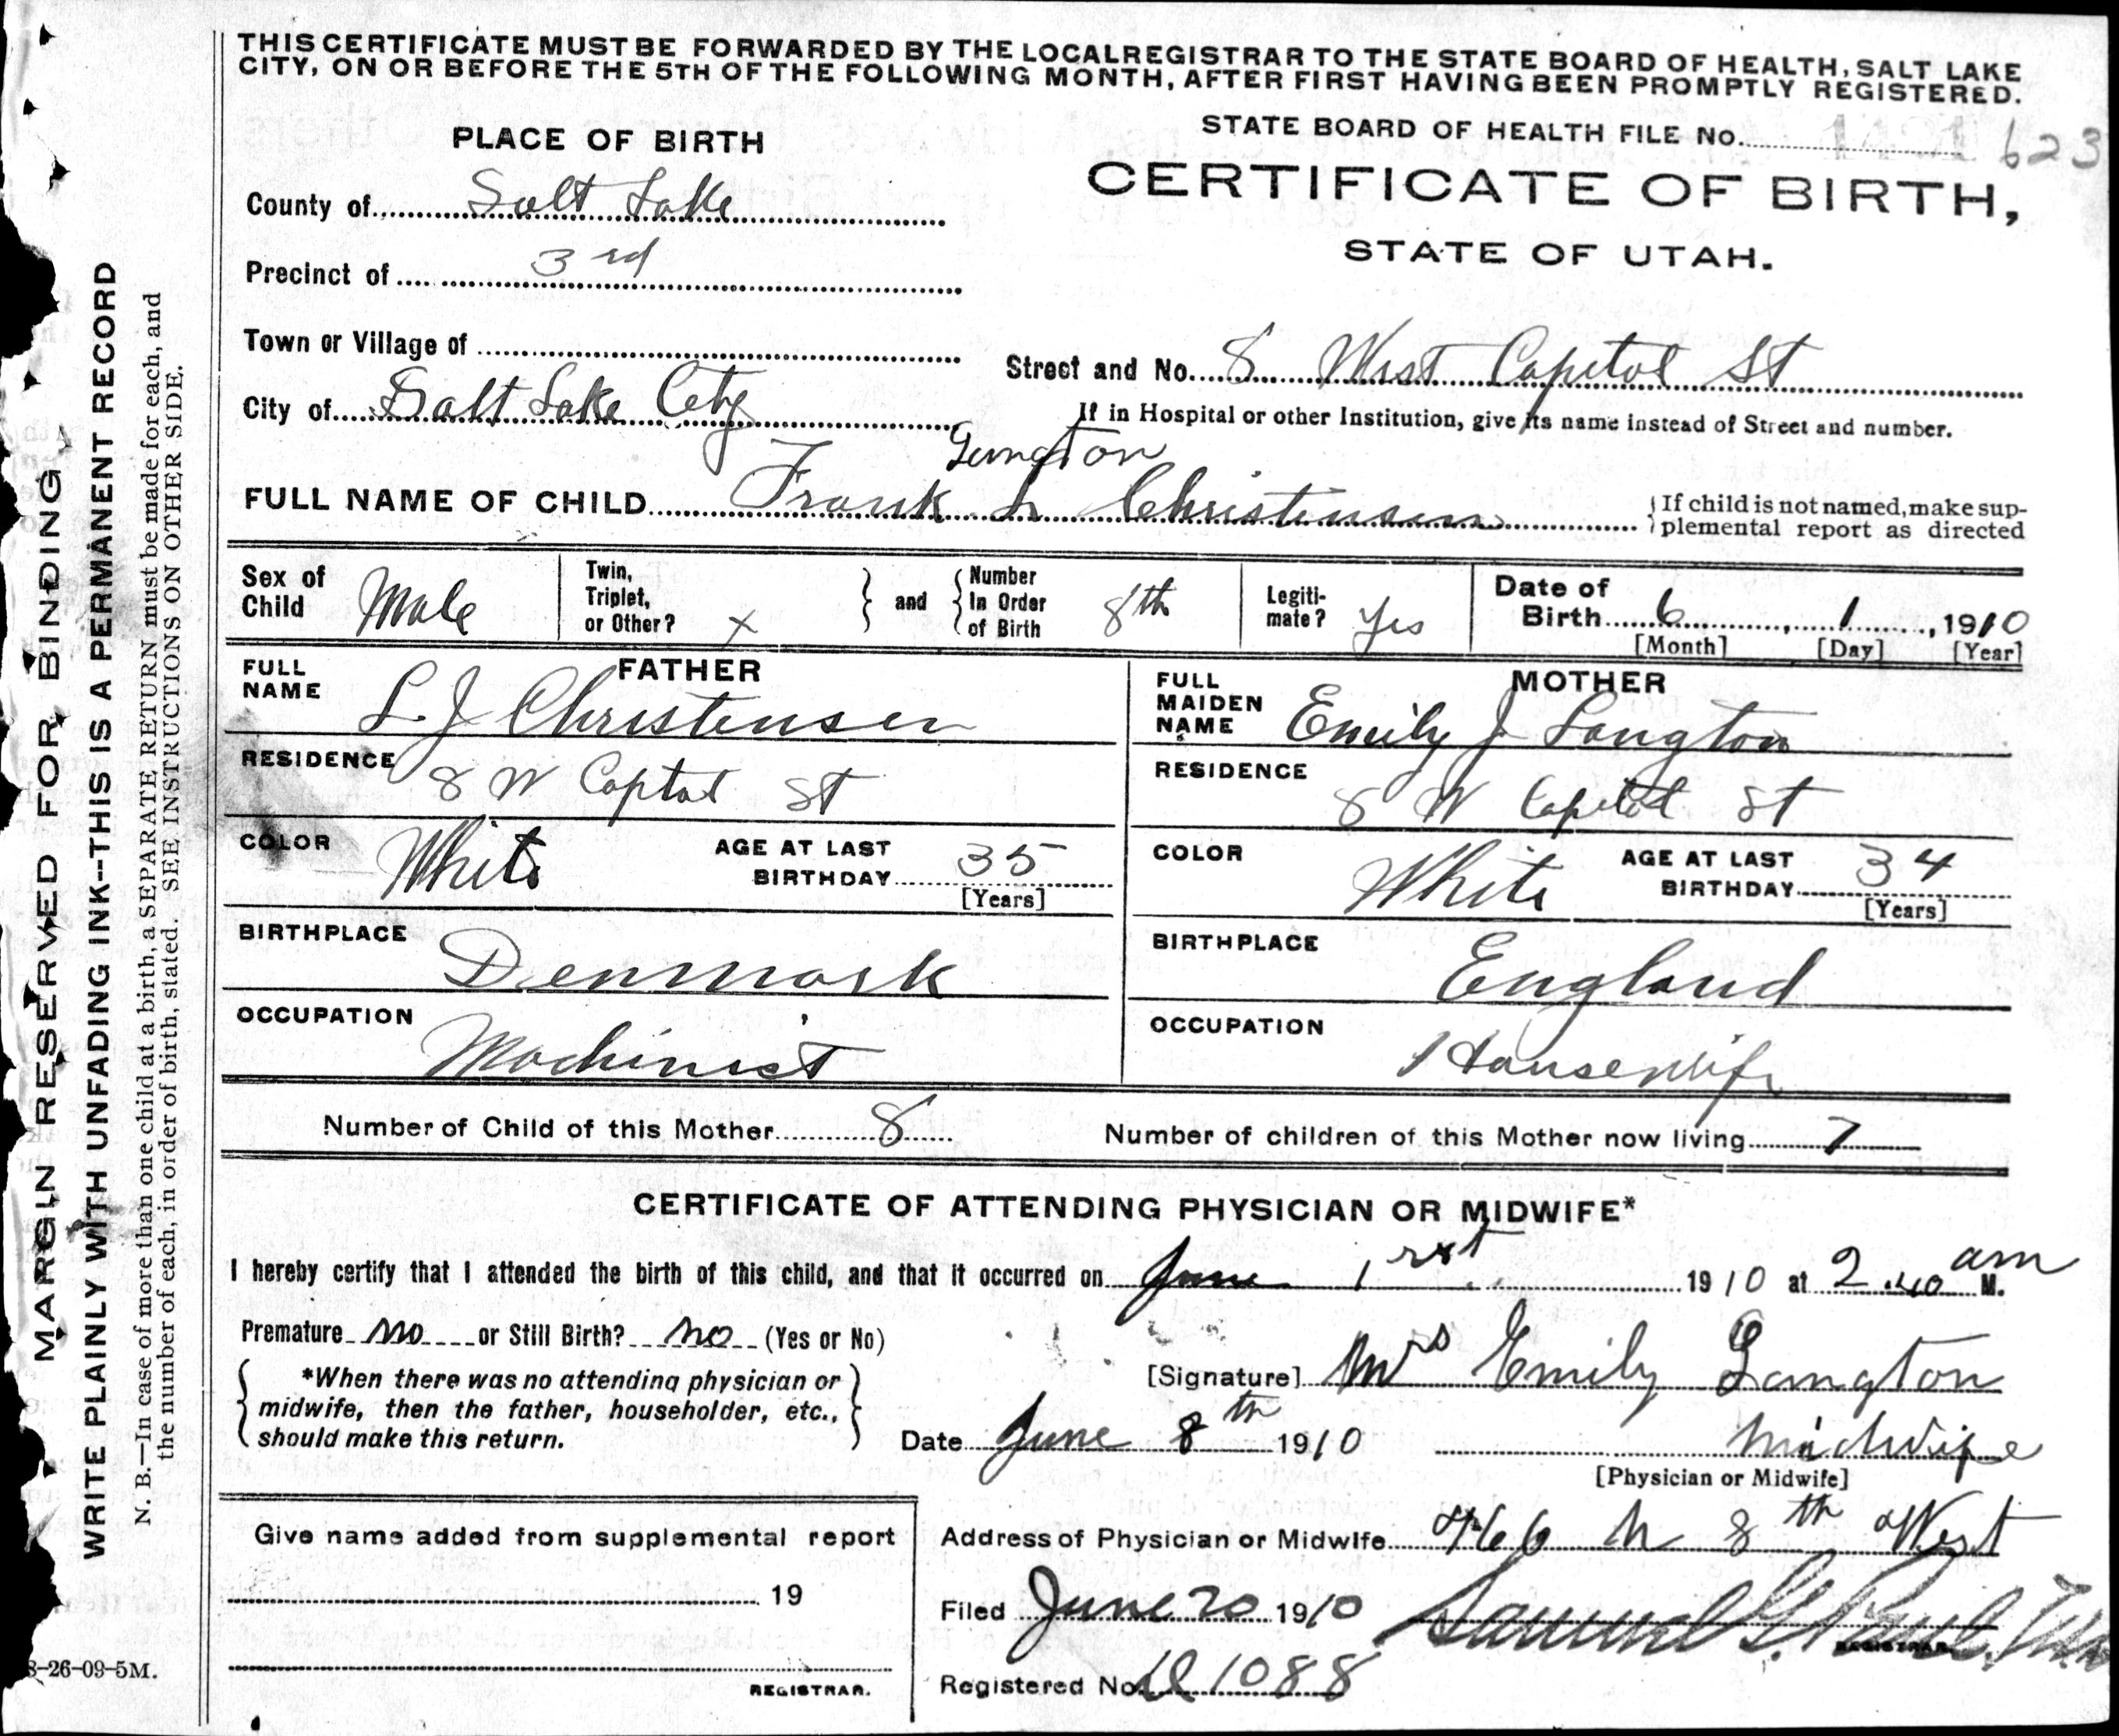 THIS CERTIFICATE MUST BE FORWARDED BY THE LOCAL REGISTRAR TO THE STATE BOARD OF HEALTH, SALT LAKE
CITY, ON OR BEFORE THE 5TH OF THE FOLLOWING MONTH, AFTER FIRST HAVING BEEN PROMPTLY REGISTERED.
STATE BOARD OF HEALTH FILE No. 623
PLACE OF BIRTH
CERTIFICATE OF BIRTH,
STATE OF UTAH.
County of Salt Lake
Precinct of 3rd
Town or Village of
Street and No. 8 West Capitol St
City of Salt Lake City
If in Hospital or other Institution, give its name instead of Street and number.
FULL NAME OF CHILD Frank L Christensen
If child is not named, make sup-
plemental report as directed
Sex of Child Male
Twin, Triplet, or Other? x
and
Number In Order of Birth 8th
Legiti-mate? Yes
Date of Birth 6, 1, 1910
[Month] [Day] [Year]
FATHER
FULL NAME L. J Christensen
RESIDENCE 8 W Captol St
COLOR White
AGE AT LAST BIRTHDAY 35
[Years]
BIRTHPLACE Denmark
OCCUPATION Machinist
MOTHER
FULL MAIDEN NAME Emily J Langton
RESIDENCE 8 W Capitol St
COLOR White
AGE AT LAST BIRTHDAY 34
[Years]
BIRTHPLACE England
OCCUPATION Housewife
Number of Child of this Mother 8
Number of children of this Mother now living 7
CERTIFICATE OF ATTENDING PHYSICIAN OR MIDWIFE*
I hereby certify that I attended the birth of this child, and that it occurred on June 1rst 1910 at 2.40 am M.
Premature no or Still Birth? no (Yes or No)
*When there was no attending physician or
midwife, then the father, householder, etc.,
should make this return.
[Signature] Mrs Emily Langton
Date June 8th 1910
Midwife
[Physician or Midwife]
Give name added from supplemental report
19
REGISTRAR.
Address of Physician or Midwife 466 N 8th West
Filed June 20 1910
Samuel G. Paul
REGISTRAR
Registered No. 1088
MARGIN RESERVED FOR BINDING
WRITE PLAINLY WITH UNFADING INK--THIS IS A PERMANENT RECORD
N. B.—In case of more than one child at a birth, a SEPARATE RETURN must be made for each, and
the number of each, in order of birth, stated. SEE INSTRUCTIONS ON OTHER SIDE.
8-26-09-5M.